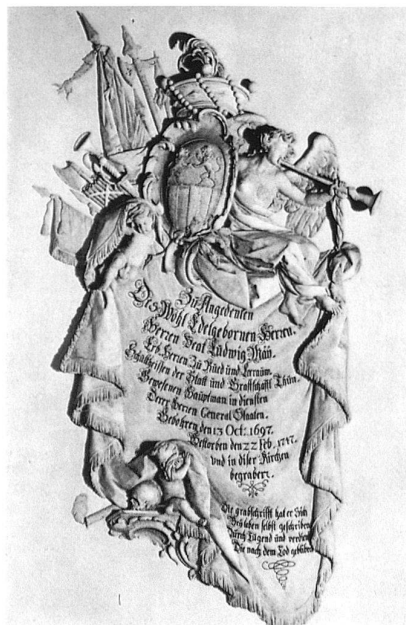 Zu Angedencken
Des Wohl Edelgebornen Herren.
Herren Beat Ludwig Mäÿ.
Herren Zu Rued und
Schultheissen der Statt und Graffschafft Thun.
Gewesenen Hauptman in diensten
Derer Herren General Staaten.
Gebohren den 13 Oct: 1697.
Gestorben den 22 Feb. 1747.
und in diser Kirchen
begraben:
Die grabschrifft hat er Sich
Beÿ leben selbst geschriben
Durch Tugend und
Die nach dem Tod gebliben